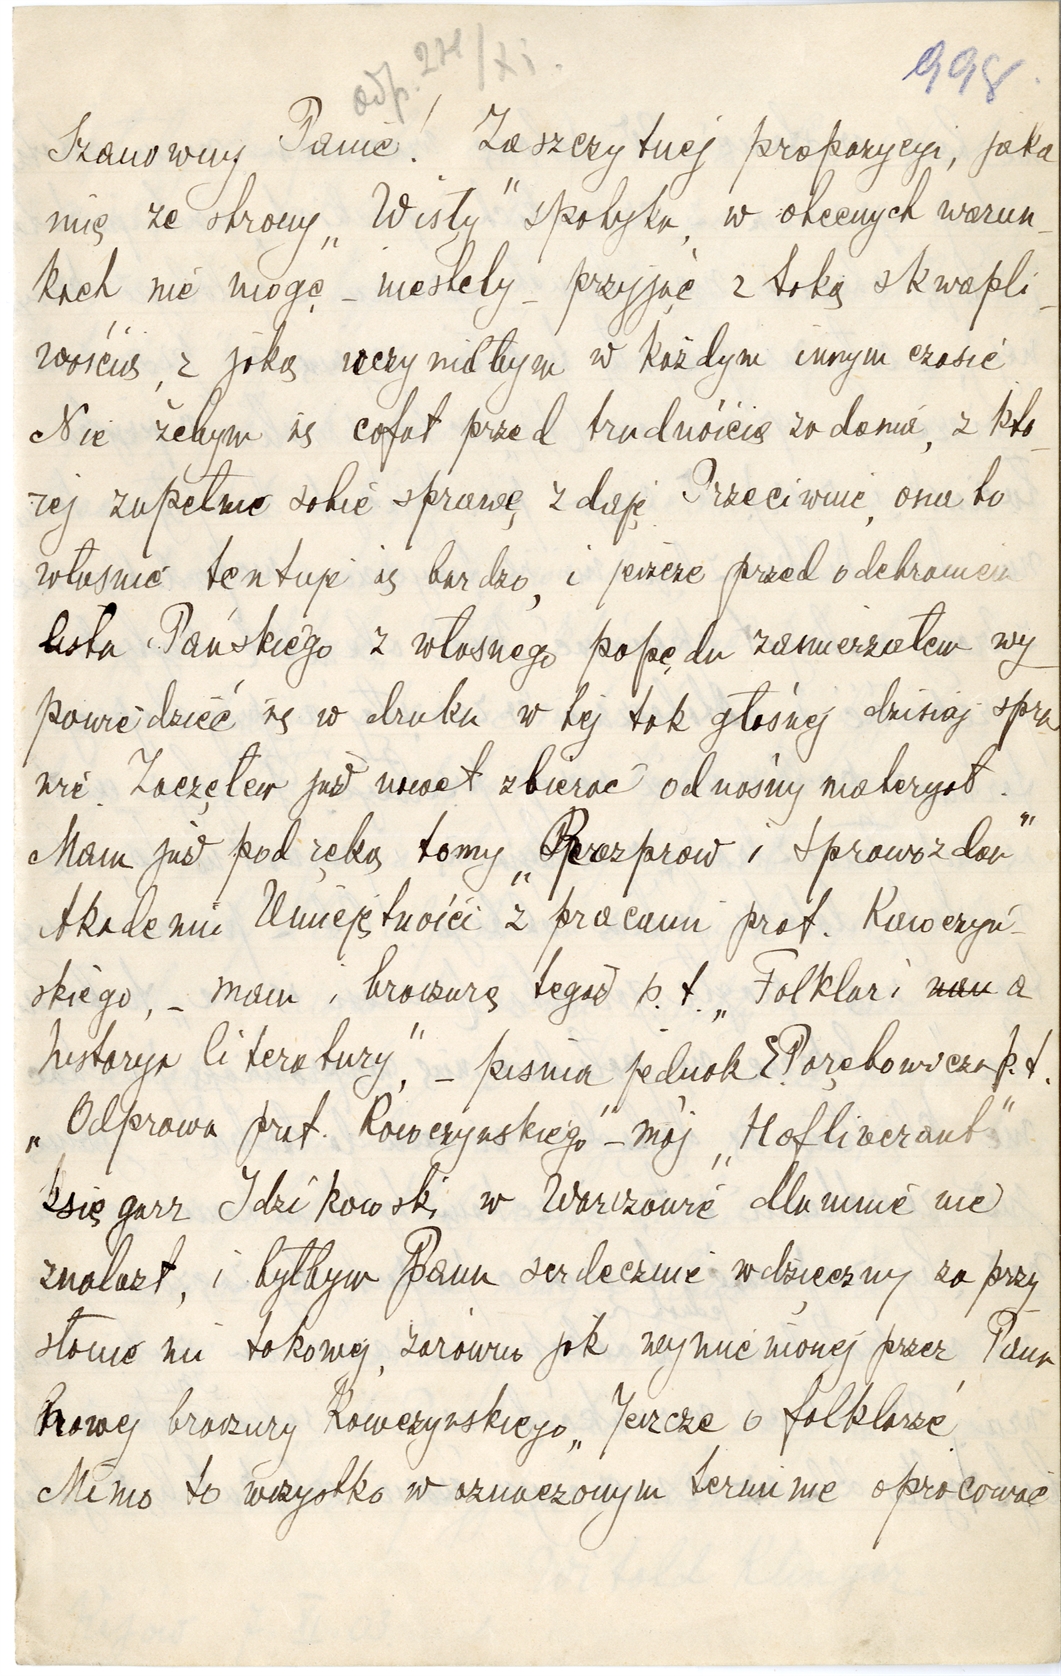 odp. 27/XI.
998.
Szanowny Panie! Zaszczytnej propozycyi, jaka
mię ze strony „Wisły" spotyka, w obecnych warun-
kach nie mogę – niestety – przyjąć z taką skwapli-
wością, z jaką uczyniłbym w każdym innym czasie
Nie żebym się cofał przed trudnością zadania, z któ-
rej zupełnie sobie sprawę zdaję. Przeciwnie, ona to
właśnie tentuje się bardzo, i jeszcze przed odebraniem
listu Pańskiego z własnego popędu zamierzałem wy-
powiedzieć się w druku w tej tak głośnej dzisiaj spra
wie. Zacząłem już nawet zbierać odnośny materyał.
Mam już pod ręką tomy „Rozpraw i Sprawozdań"
Akademii Umiejętności z pracami prof. Kawczyń-
skiego, – mam i broszurę tegoż p. t. „Folklor i nau a
historya literatury", – pisma jednak E. Porębowicza p. t.
„Odprawa prof. Kawczyńskiego" – mój „Hofliverant"
księgarz Idzikowski w Warszawie dla mnie nie
znalazł, i byłbym Panu serdecznie wdzięczny za przy
słanie mi takowej, zarówno jak wymienionej przez Pana
nowej broszury Kawczyńskiego „Jeszcze o folklorze
Mimo to wszystko w oznaczonym terminie opracować